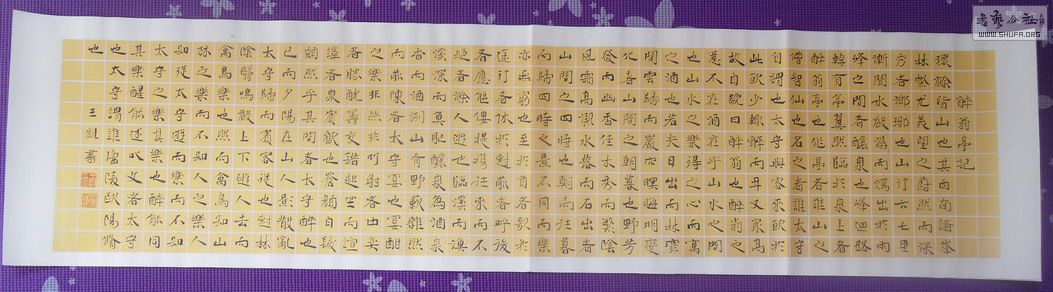 醉翁亭記
環滁皆山也其西南諸峯
林壑尤美望之蔚而深
秀者琅琊也山行六七里
漸聞水聲潺潺而瀉出於兩
峰之間者釀泉也峰回路
轉有亭翼然臨於泉上者
醉翁亭也作亭者誰山之
僧智仙也名之者誰太守
自謂也太守與客來飲於
此飲少輒醉而年又最高
故自號曰醉翁也醉翁之
意不在酒在乎山水之間
也山水之樂得之心而寓
之酒也若夫日出而林霏
開雲歸而巖穴暝晦明變
化者山間之朝暮也野芳
發而幽香佳木秀而繁陰
風霜高潔水落而石出者
山間之四時也朝而往暮
而歸四時之景不同而樂
亦無窮也至於負者歌於
途行者休於樹前者呼後
者應傴僂提攜往來而不
絕者滁人遊也臨溪而漁
溪深而魚肥釀泉為酒泉
香而酒洌山肴野蔌雜然
而前陳者太守宴也宴酣
之樂非絲非竹射者中奕
者勝觥籌交錯起坐而諠
譁者眾賓歡也蒼顏白髮
頹然乎其間者太守醉也
已而夕陽在山人影散亂
太守歸而賓客從也樹林
陰翳鳴聲上下遊人去而
禽鳥樂也然而禽鳥知山
林之樂而不知人之樂人
知從太守遊而樂而不知
太守之樂其樂也醉能同
其樂醒能述以文者太守
也太守謂誰廬陵歐陽脩
也 王凱書
WWW.SHUFA.ORG